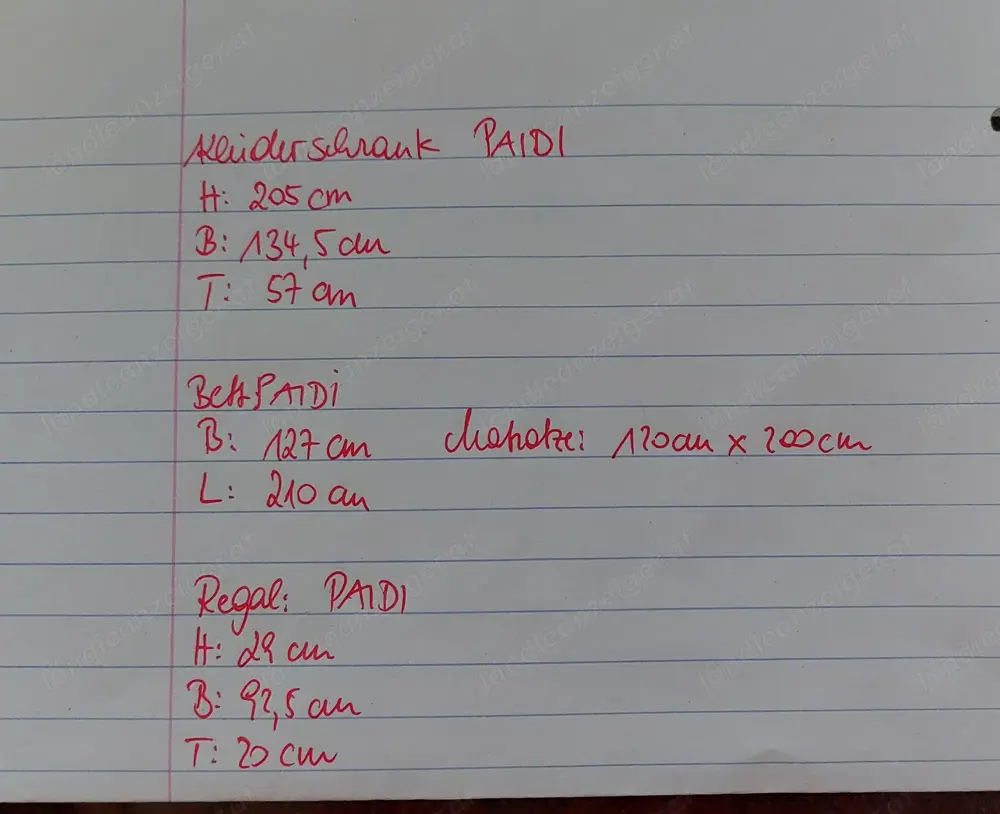 Kleiderschrank PAIDI
H: 205 cm
B: 134,5 cm
T: 57 cm
Bett PAIDI
B: 127 cm Matratze: 120cm x 200cm
L: 210 cm
Regal: PAIDI
H: 29 cm
B: 92,5 cm
T: 20 cm